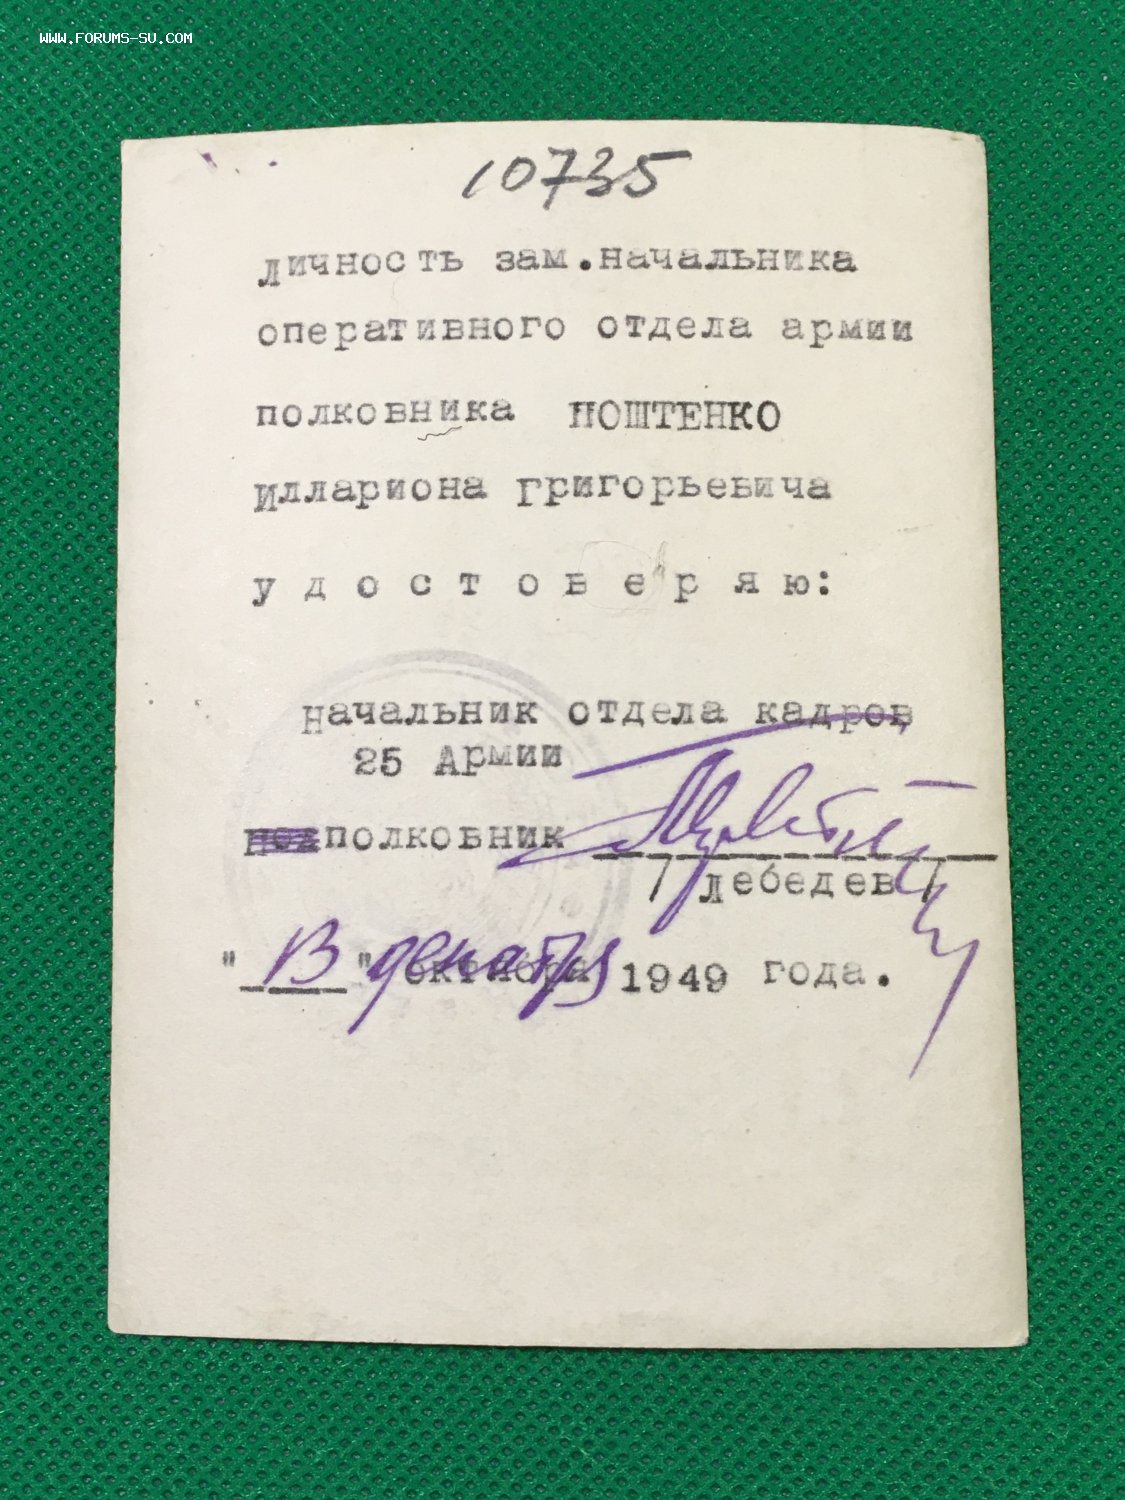 WWW.FORUMS-SU.COM
10735
Личность зам.начальника
оперативного отдела армии
полковника ПОШТЕНКО
Иллариона Григорьевича
у д о с т о в е р я ю:
Начальник отдела кадров
25 Армии
подполковник
/ Лебедев /
"13" октября декабря 1949 года.